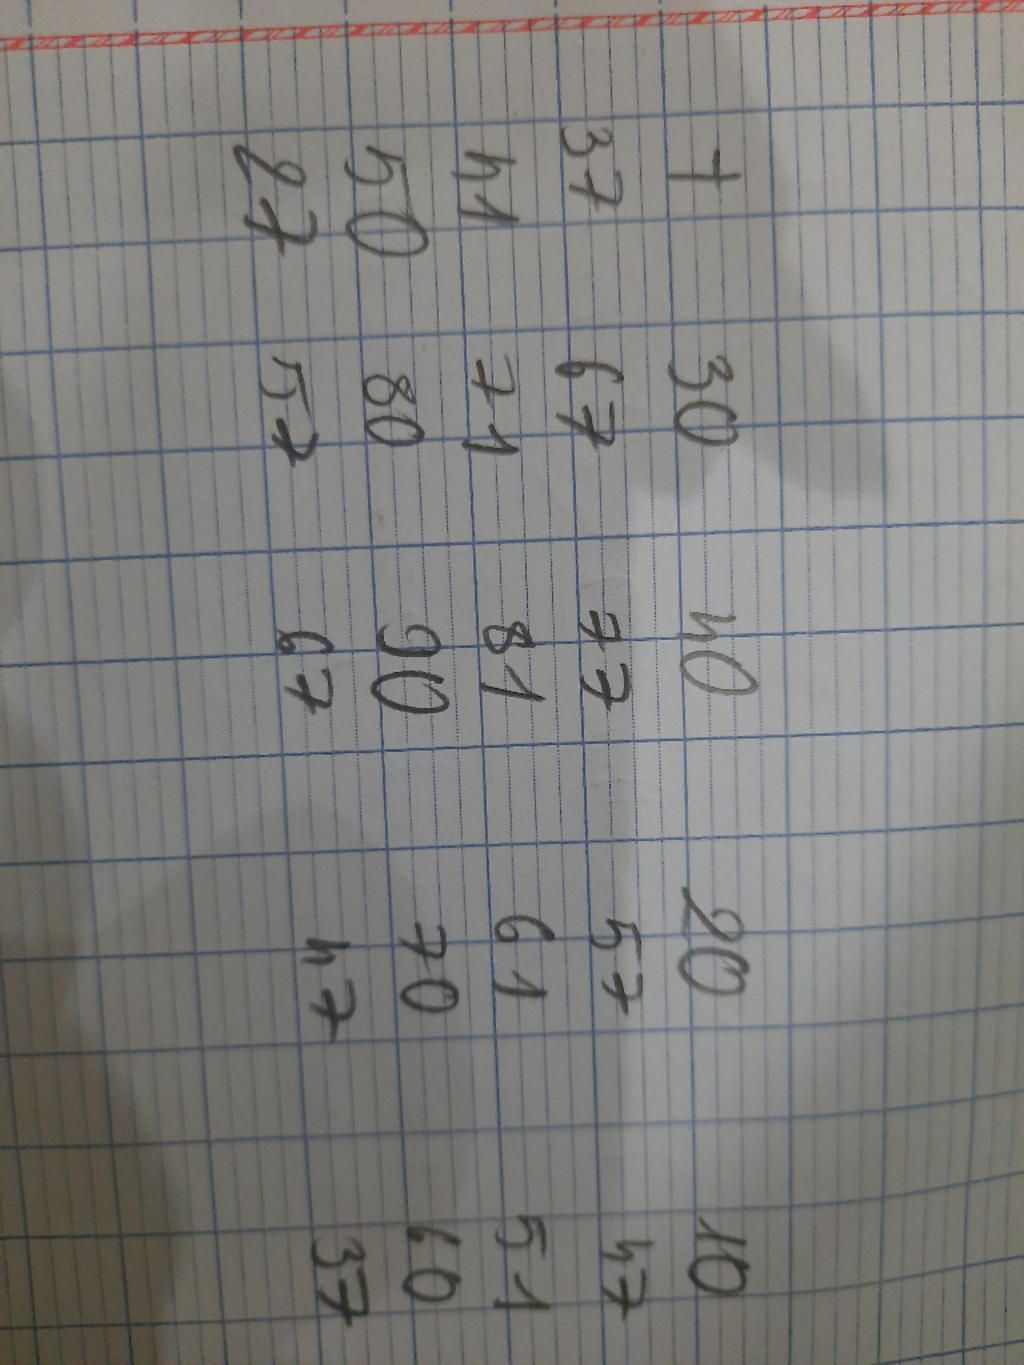 + 30 40 20 10
37 67 77 57 47
41 71 81 61 51
50 80 90 70 60
27 57 67 47 37